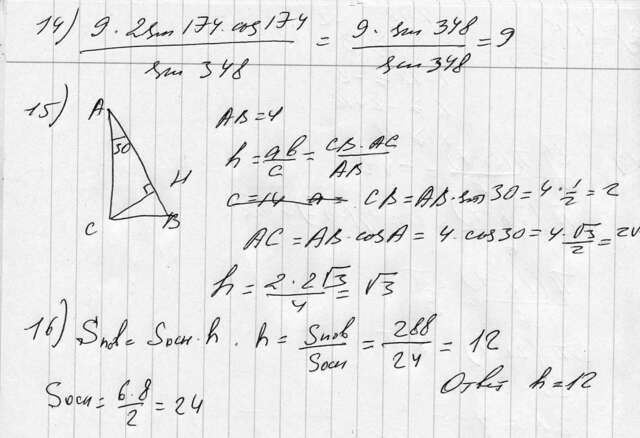 14) (9 · 2sin 174 · cos 174) / (sin 348) = (9 · sin 348) / (sin 348) = 9
15) A 30 H C B
AB = 4
h = ab/c = (CB · AC)/AB
CB = AB · sin 30 = 4 · 1/2 = 2
AC = AB · cos A = 4 · cos 30 = 4 · √3/2 =
h = (2 · 2√3)/4 = √3
16) Sпов = Sосн · h . h = Sпов/Sосн = 288/24 = 12
Sосн = (6 · 8)/2 = 24
Ответ h = 12